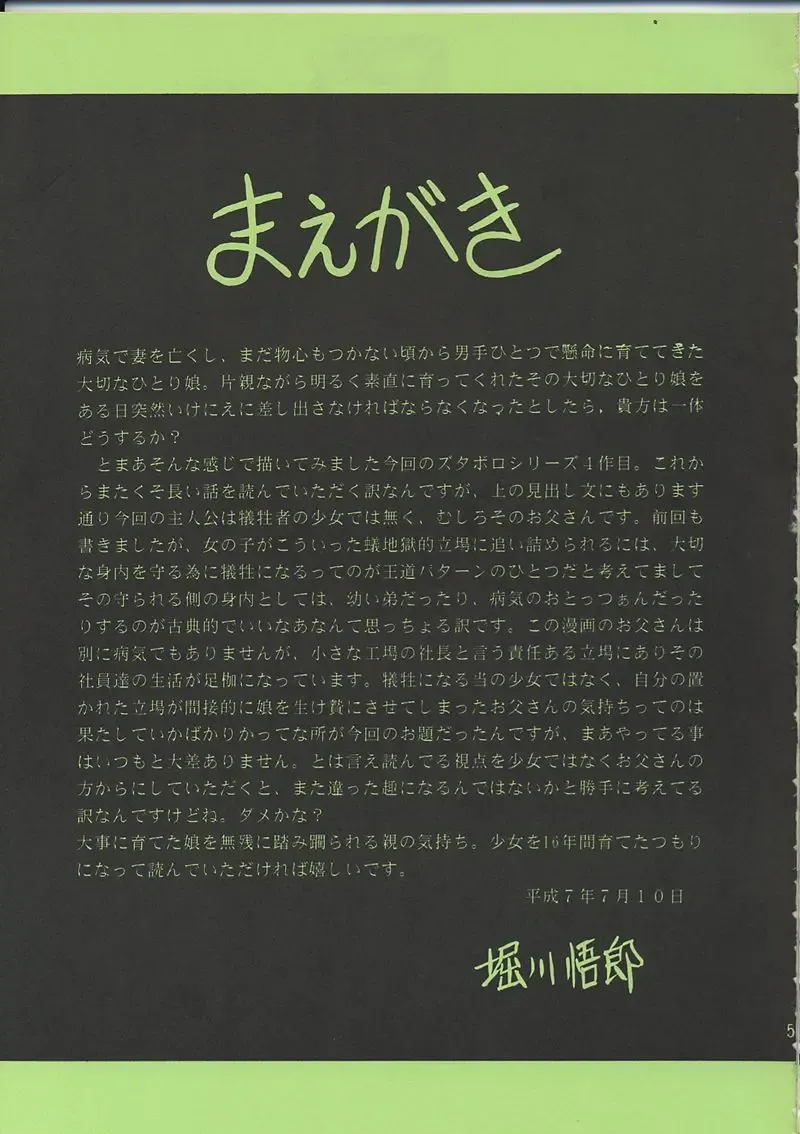 まえがき
病気で妻を亡くし、まだ物心もつかない頃から男手ひとつで懸命に育ててきた
大切なひとり娘。片親ながら明るく素直に育ってくれたその大切なひとり娘を
ある日突然いけにえに差し出さなければならなくなったとしたら，貴方は一体
どうするか？
　とまあそんな感じで描いてみました今回のズタボロシリーズ４作目。これか
らまたくそ長い話を読んでいただく訳なんですが、上の見出し文にもあります
通り今回の主人公は犠牲者の少女では無く、むしろそのお父さんです。前回も
書きましたが、女の子がこういった蟻地獄的立場に追い詰められるには、大切
な身内を守る為に犠牲になるってのが王道パターンのひとつだと考えてまして
その守られる側の身内としては、幼い弟だったり、病気のおとっつぁんだった
りするのが古典的でいいなあなんて思っちょる訳です。この漫画のお父さんは
別に病気でもありませんが、小さな工場の社長と言う責任ある立場にありその
社員達の生活が足枷になっています。犠牲になる当の少女ではなく、自分の置
かれた立場が間接的に娘を生け贄にさせてしまったお父さんの気持ちってのは
果たしていかばかりかってな所が今回のお題だったんですが、まあやってる事
はいつもと大差ありません。とは言え読んでる視点を少女ではなくお父さんの
方からにしていただくと、また違った趣になるんではないかと勝手に考えてる
訳なんですけどね。ダメかな？
大事に育てた娘を無残に踏み躙られる親の気持ち。少女を16年間育てたつもり
になって読んでいただければ嬉しいです。
平成７年７月１０日
堀川悟郎
5